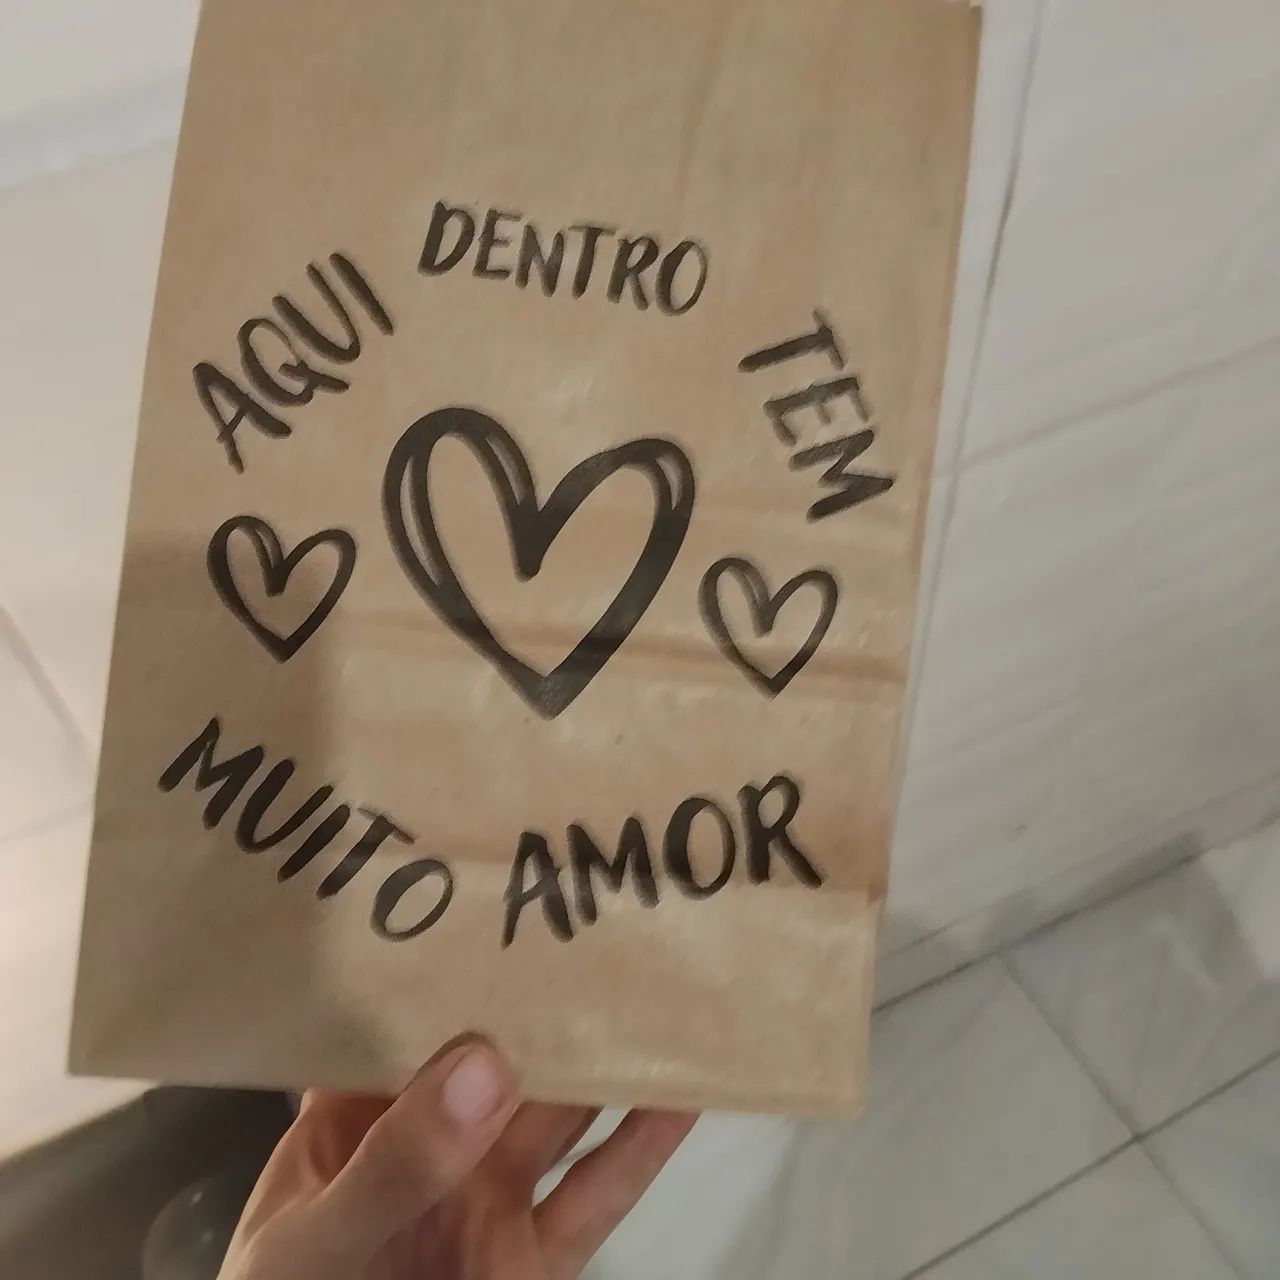 AQUI DENTRO TEM
MUITO AMOR